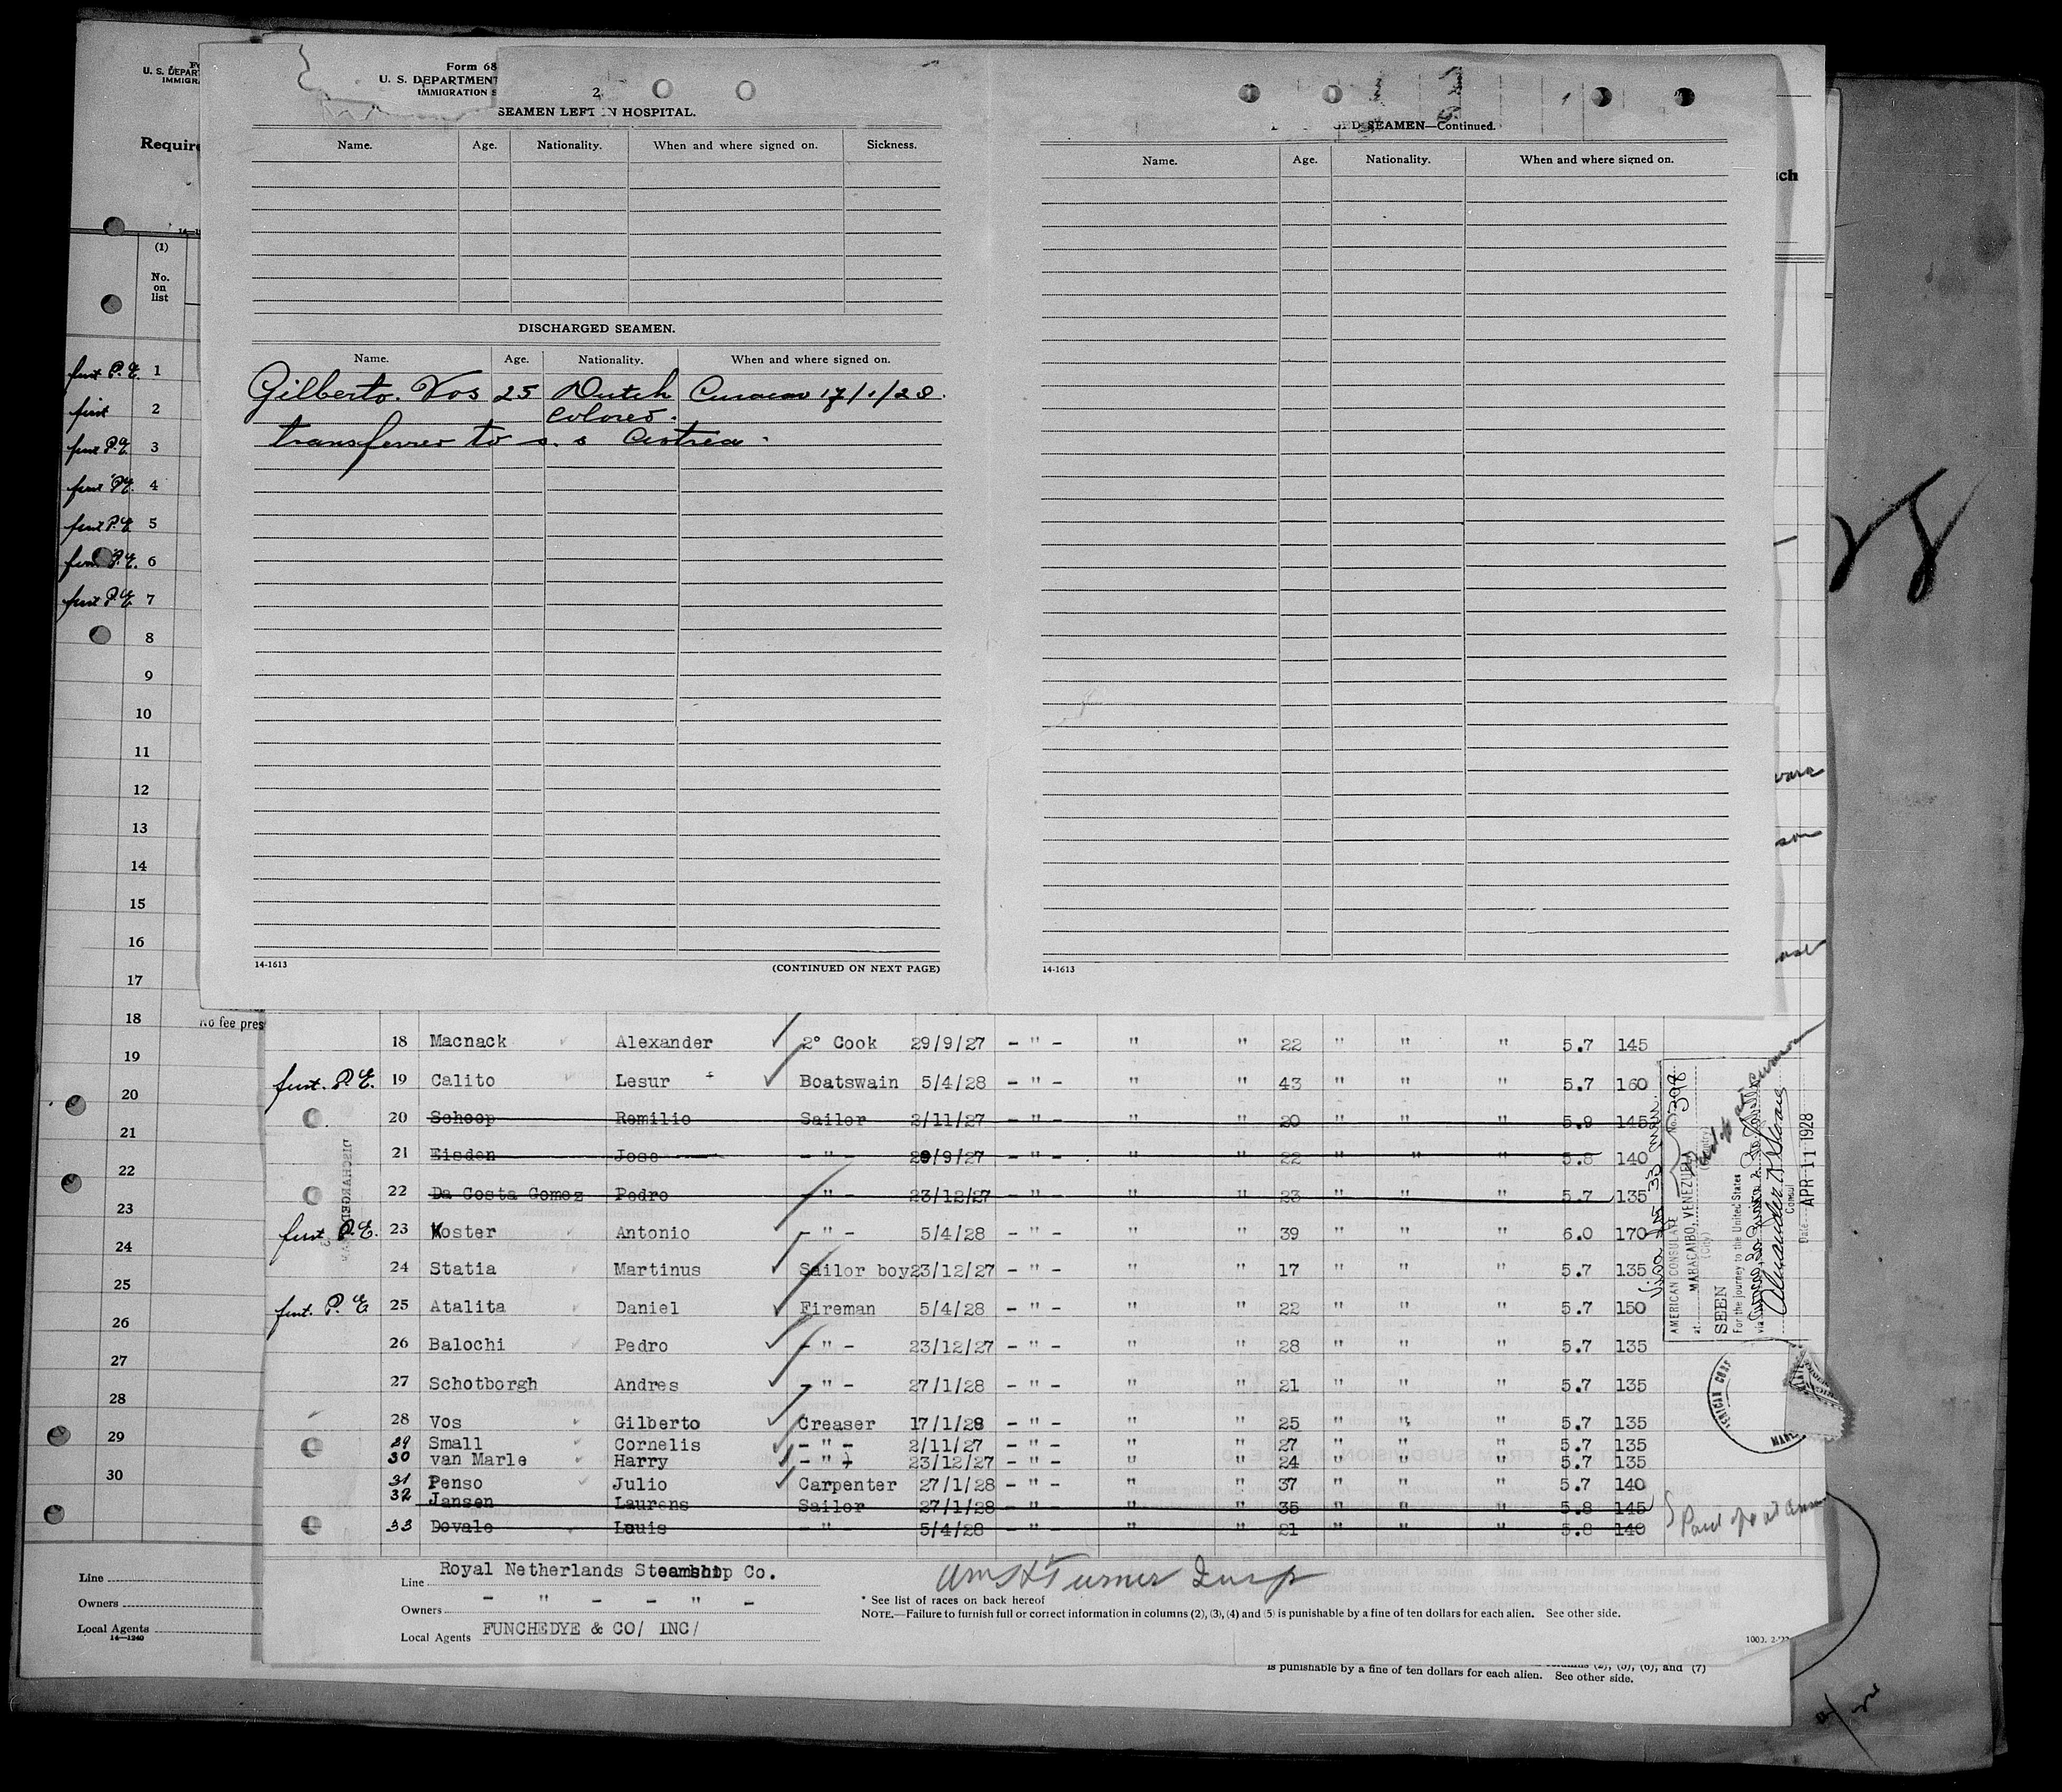 Form 68
U. S. DEPARTMENT
IMMIGRATION S
2
SEAMEN LEFT IN HOSPITAL.
Name. Age. Nationality. When and where signed on. Sickness.
DISCHARGED SEAMEN.
Name. Age. Nationality. When and where signed on.
Gilberto. Vos 25 Dutch Curacao 17/1/28.
colored.
transferred to s. s Astrea.
14-1613 (CONTINUED ON NEXT PAGE)
SEAMEN—Continued.
Name. Age. Nationality. When and where signed on.
14-1613
U. S. DEPAR
IMMIGRA
Require
(1)
No.
on
list
first P. E. 1
first 2
first P.E. 3
first P.E. 4
first P.E. 5
P.E. 6
first P.E. 7
8
9
10
11
12
13
14
15
16
17
18
19
20
21
22
23
24
25
26
27
28
29
30
Line
Owners
Local Agents
14—1240
ch
28
No fee pres
18 Macnack Alexander 2° Cook 29/9/27 - " - " " 22 " " " 5.7 145
first. P.E. 19 Calito Lesur Boatswain 5/4/28 - " - " " 43 " " " 5.7 160
20 Schoop Remilio Sailor 2/11/27 - " - " " 20 " " " 5.9 145
21 Eisden Jose - " - 29/9/27 - " - " " 22 " " " 5.8 140
22 Da Costa Gomez Pedro - " - 23/12/27 - " - " " 23 " " " 5.7 135
first P.E. 23 Koster Antonio - " - 5/4/28 - " - " " 39 " " " 6.0 170
24 Statia Martinus Sailor boy 23/12/27 - " - " " 17 " " " 5.7 135
first. P. E 25 Atalita Daniel Fireman 5/4/28 - " - " " 22 " " " 5.7 150
26 Balochi Pedro - " - 23/12/27 - " - " " 28 " " " 5.7 135
27 Schotborgh Andres - " - 27/1/28 - " - " " 21 " " " 5.7 135
28 Vos Gilberto Greaser 17/1/28 - " - " " 25 " " " 5.7 135
29 Small Cornelis - " - 2/11/27 - " - " " 27 " " " 5.7 135
30 van Marle Harry - " - 23/12/27 - " - " " 24 " " " 5.7 135
31 Penso Julio Carpenter 27/1/28 - " - " " 37 " " " 5.7 140
32 Jansen Laurens Sailor 27/1/28 - " - " " 35 " " " 5.8 145
33 Dovale Louis - " - 5/4/28 - " - " " 21 " " " 5.8 140
DISCHARGED
Line Royal Netherlands Steamship Co.
Owners - " - - " -
Local Agents FUNCHEDYE & CO/ INC/
Wm H Turner Insp
* See list of races on back hereof
NOTE.—Failure to furnish full or correct information in columns (2), (3), (4) and (5) is punishable by a fine of ten dollars for each alien. See other side.
is punishable by a fine of ten dollars for each alien. See other side.
(2), (3), (6), and (7)
No. 398
AMERICAN CONSULATE
at MARACAIBO, VENEZUELA
(City) (Country)
SEEN
For the journey to the United States
via
Consul
Date APR 11 1928